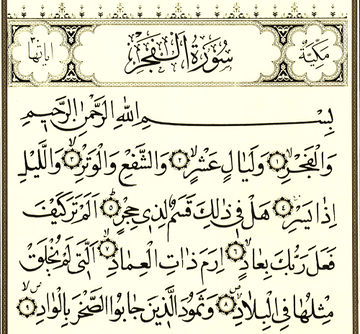 مكية سورة الفجر آياتها ٣٠
بِسْمِ اللهِ الرَّحْمٰنِ الرَّحِيمِ
وَالْفَجْرِ ﴿١﴾ وَلَيَالٍ عَشْرٍ ﴿٢﴾ وَالشَّفْعِ وَالْوَتْرِ ﴿٣﴾ وَاللَّيْلِ
إِذَا يَسْرِ ﴿٤﴾ هَلْ فِي ذٰلِكَ قَسَمٌ لِذِي حِجْرٍ ﴿٥﴾ أَلَمْ تَرَ كَيْفَ
فَعَلَ رَبُّكَ بِعَادٍ ﴿٦﴾ إِرَمَ ذَاتِ الْعِمَادِ ﴿٧﴾ الَّتِي لَمْ يُخْلَقْ
مِثْلُهَا فِي الْبِلَادِ ﴿٨﴾ وَثَمُودَ الَّذِينَ جَابُوا الصَّخْرَ بِالْوَادِ ﴿٩﴾